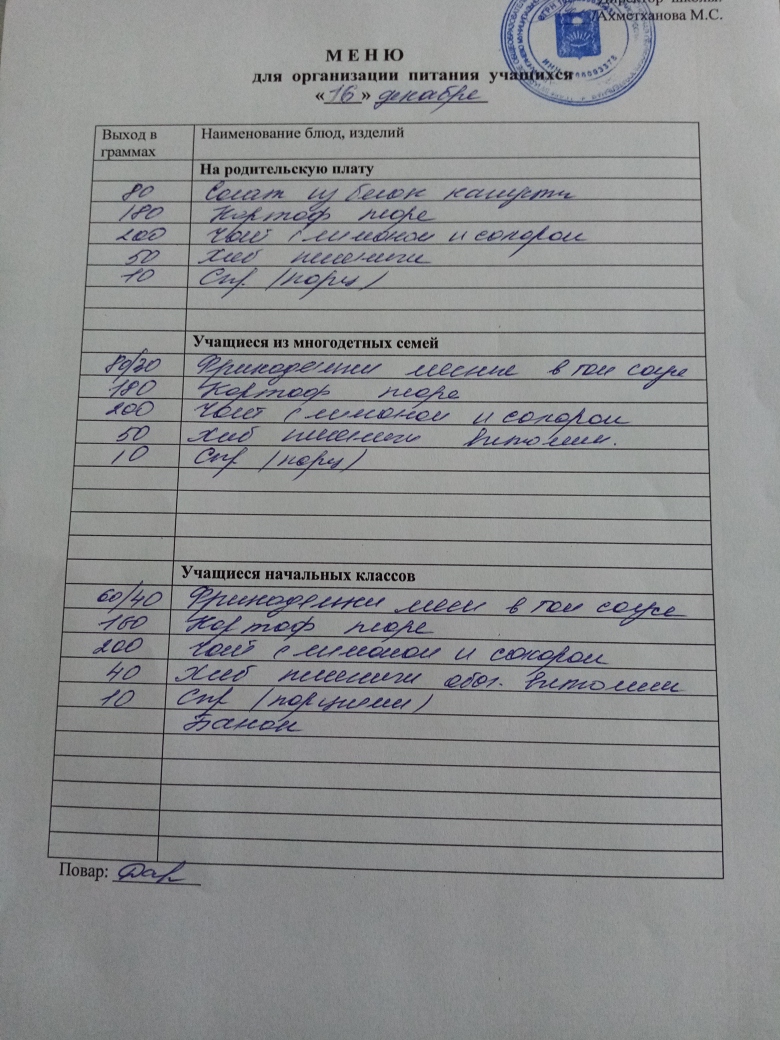 Директор школы:
Ахметханова М.С.
М Е Н Ю
для организации питания учащихся
«16» декабря
Выход в граммах Наименование блюд, изделий
На родительскую плату
80 Салат из белок капусты
180 Картоф пюре
200 Чай с лимоном и сахаром
50 Хлеб пшенич
10 Сыр (порц)
Учащиеся из многодетных семей
80/30 Фрикадельки мясные в том соусе
180 Картоф пюре
200 Чай с лимоном и сахаром
50 Хлеб пшенич витамин.
10 Сыр (порц)
Учащиеся начальных классов
60/40 Фрикадельки мясн в том соусе
180 Картоф пюре
200 Чай с лимоном и сахаром
40 Хлеб пшенич обог. витамин
10 Сыр (порциями)
Банан
Повар: